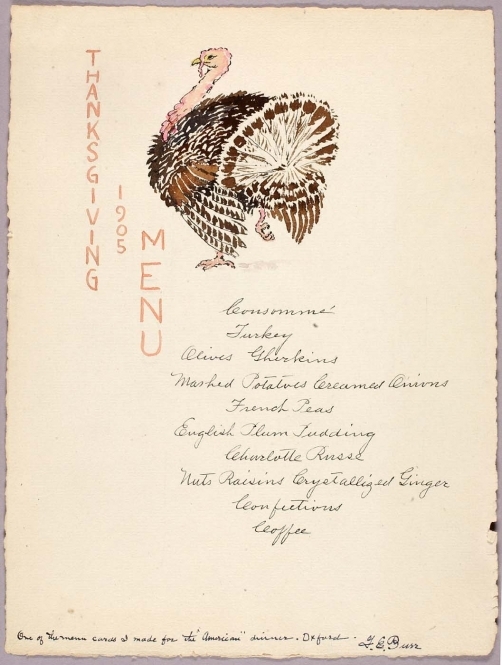 THANKSGIVING
1905
MENU
Consommé
Turkey
Olives Gherkins
Mashed Potatoes Creamed Onions
French Peas
English Plum Pudding
Charlotte Russe
Nuts Raisins Crystallized Ginger
Confictions
Coffee
One of the menu cards I made for the "American" dinner - Oxford -
F. C. Burr